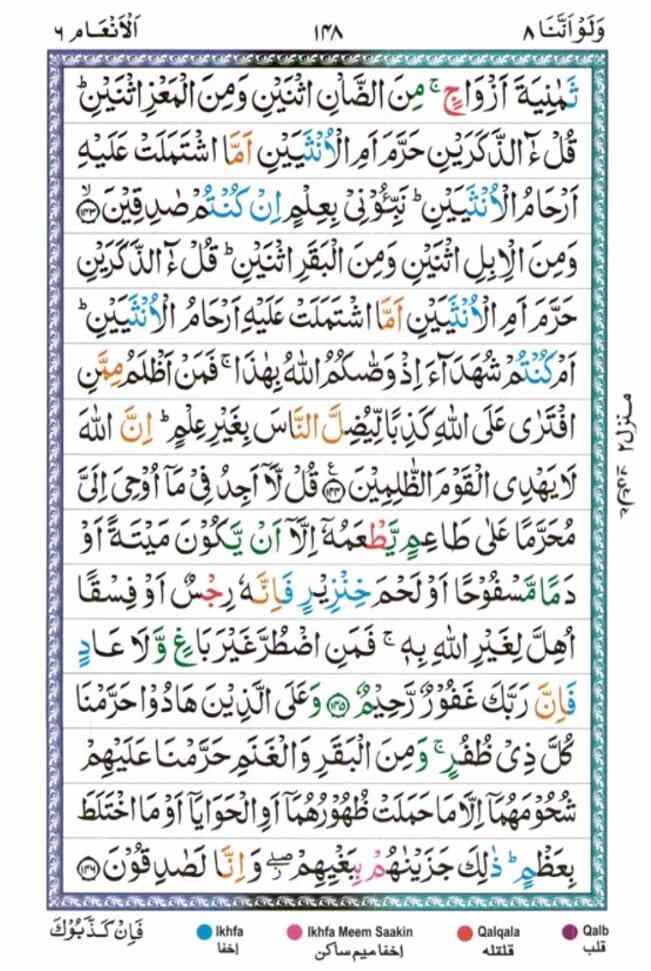 وَلَوْ اَنَّنَا ۸
۱۴۸
اَلْاَنْعَام ۶
ثَمٰنِيَةَ اَزْوَاجٍ ۚ مِنَ الضَّاْنِ اثْنَيْنِ وَمِنَ الْمَعْزِ اثْنَيْنِ ؕ
قُلْ ءٰٓالذَّكَرَيْنِ حَرَّمَ اَمِ الْاُنْثَيَيْنِ اَمَّا اشْتَمَلَتْ عَلَيْهِ
اَرْحَامُ الْاُنْثَيَيْنِ ؕ نَبِّـُٔوْنِيْ بِعِلْمٍ اِنْ كُنْتُمْ صٰدِقِيْنَ ۙ‏﴿۱۴۳﴾
وَمِنَ الْاِبِلِ اثْنَيْنِ وَمِنَ الْبَقَرِ اثْنَيْنِ ؕ قُلْ ءٰٓالذَّكَرَيْنِ
حَرَّمَ اَمِ الْاُنْثَيَيْنِ اَمَّا اشْتَمَلَتْ عَلَيْهِ اَرْحَامُ الْاُنْثَيَيْنِ ؕ
اَمْ كُنْتُمْ شُهَدَآءَ اِذْ وَصّٰىكُمُ اللّٰهُ بِهٰذَا ۚ فَمَنْ اَظْلَمُ مِمَّنِ
افْتَرٰى عَلَى اللّٰهِ كَذِبًا لِّيُضِلَّ النَّاسَ بِغَيْرِ عِلْمٍ ؕ اِنَّ اللّٰهَ
لَا يَهْدِى الْقَوْمَ الظّٰلِمِيْنَ ﴿۱۴۴﴾ ع قُلْ لَّاۤ اَجِدُ فِيْ مَاۤ اُوْحِيَ اِلَيَّ
مُحَرَّمًا عَلٰى طَاعِمٍ يَّطْعَمُهٗۤ اِلَّاۤ اَنْ يَّكُوْنَ مَيْتَةً اَوْ
دَمًا مَّسْفُوْحًا اَوْ لَحْمَ خِنْزِيْرٍ فَاِنَّهٗ رِجْسٌ اَوْ فِسْقًا
اُهِلَّ لِغَيْرِ اللّٰهِ بِهٖ ۚ فَمَنِ اضْطُرَّ غَيْرَ بَاغٍ وَّلَا عَادٍ
فَاِنَّ رَبَّكَ غَفُوْرٌ رَّحِيْمٌ ﴿۱۴۵﴾ وَعَلَى الَّذِيْنَ هَادُوْا حَرَّمْنَا
كُلَّ ذِيْ ظُفُرٍ ۚ وَمِنَ الْبَقَرِ وَالْغَنَمِ حَرَّمْنَا عَلَيْهِمْ
شُحُوْمَهُمَاۤ اِلَّا مَا حَمَلَتْ ظُهُوْرُهُمَاۤ اَوِ الْحَوَايَاۤ اَوْ مَا اخْتَلَطَ
بِعَظْمٍ ؕ ذٰلِكَ جَزَيْنٰهُمْ بِبَغْيِهِمْ ۖ وَاِنَّا لَصٰدِقُوْنَ ﴿۱۴۶﴾
منزل ۲
فَاِنْ كَذَّبُوْكَ
Ikhfa
إخفا
Ikhfa Meem Saakin
إخفا ميم ساكن
Qalqala
قلقله
Qalb
قلب